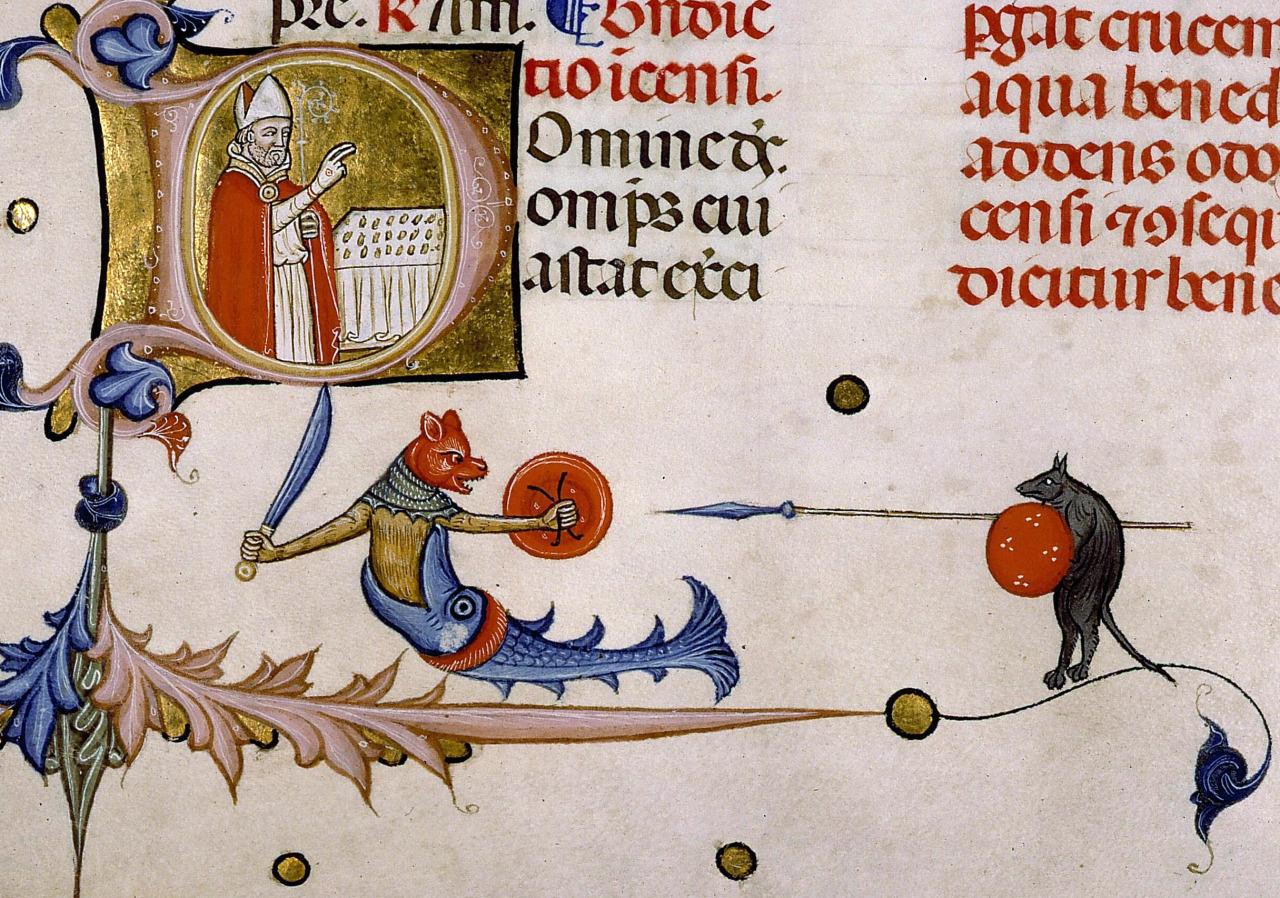 pre. R Am. Bndic
tio icensi.
Omine ds.
omps cui
astat exci
pgat crucem
aqua bened
addens odo
censi 79 sequ
dicitur bene